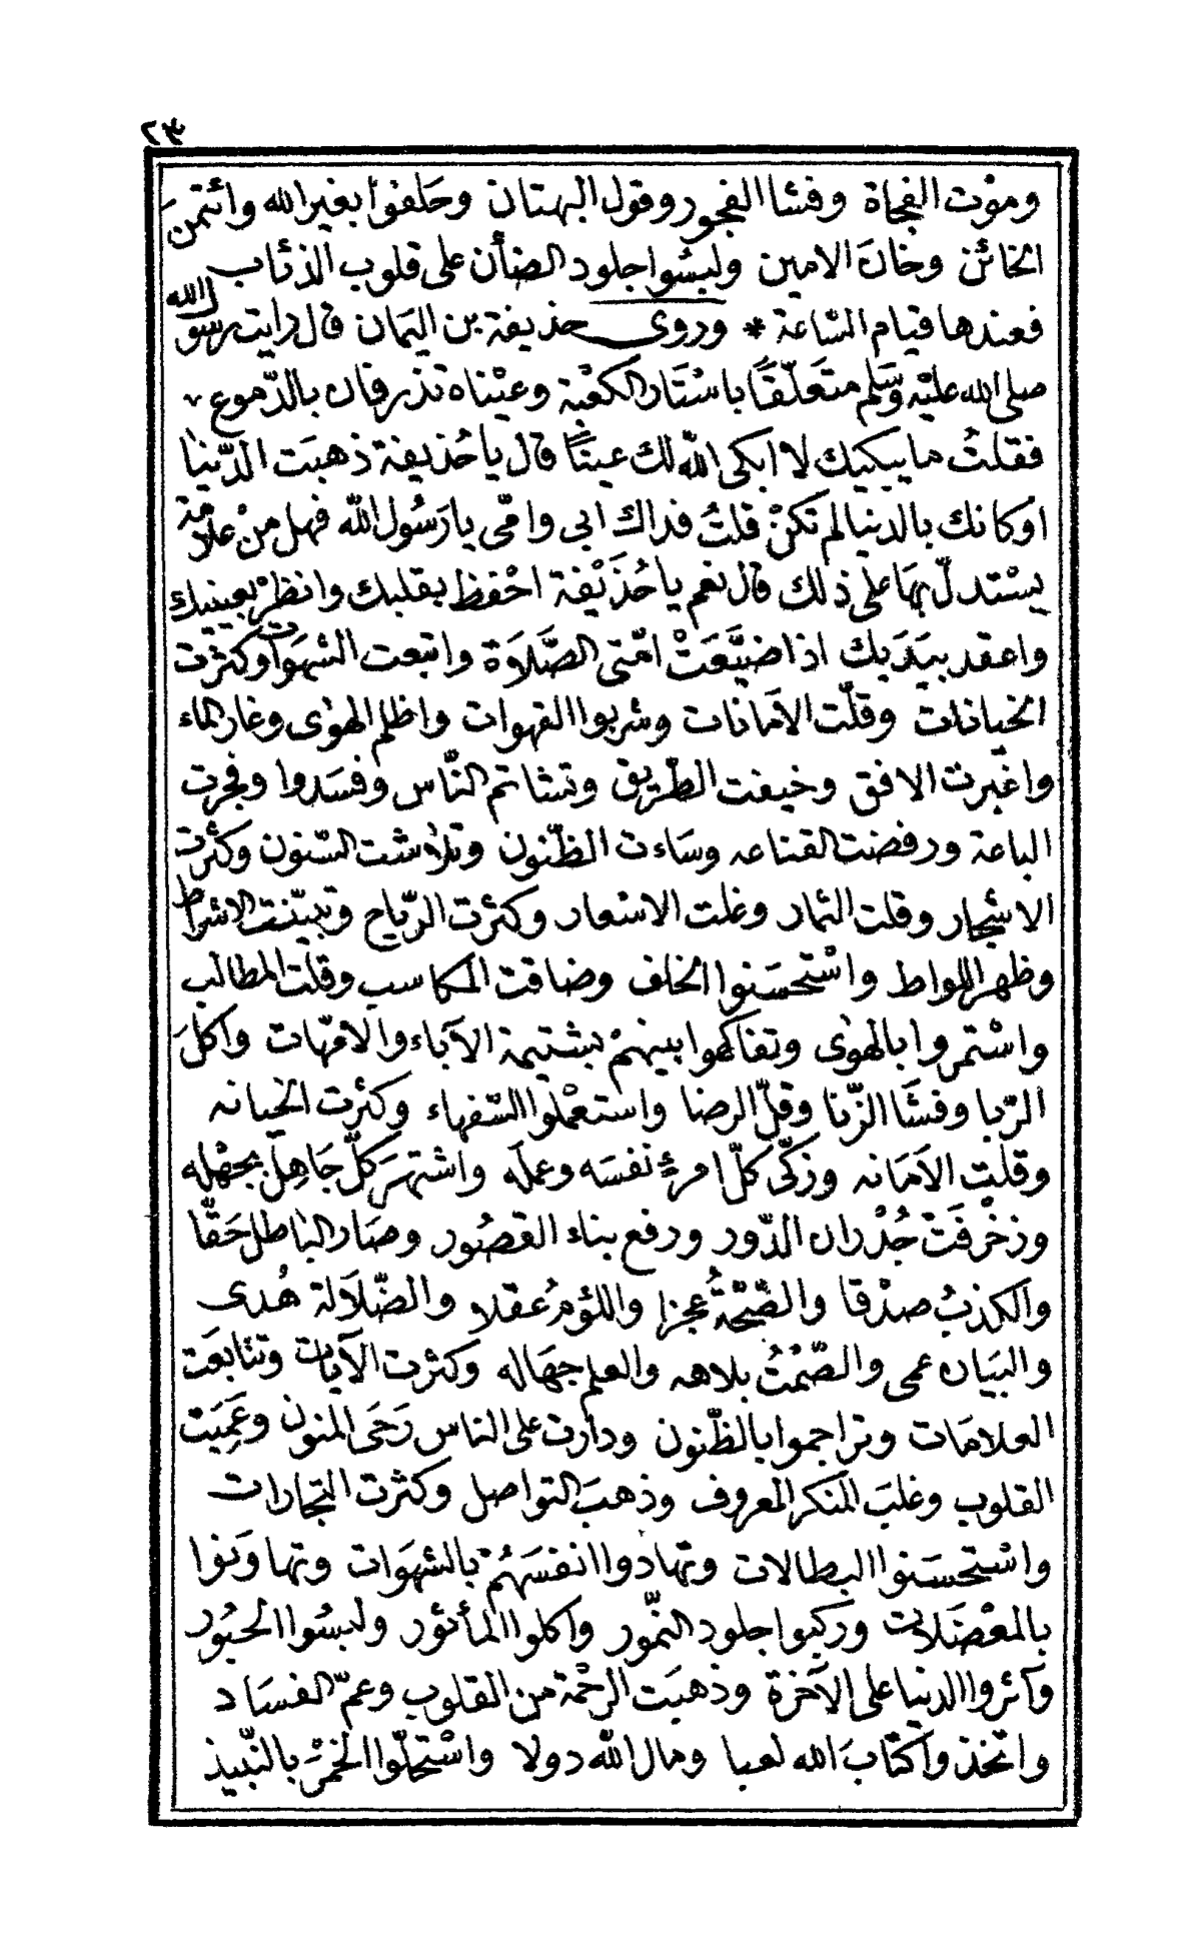 ٢٣
وموْت الفجاة وفشا الفجور وقول البهتان وحَلفوا بغير الله وائتمنَ
الخائن وخان الامين ولبسُوا جلود الضأن على قلوب الذئاب
فعندها قيام السّاعة * وروى حذيفة بن اليمان قال رايت رسول الله
صلى الله عليْه وسَلم متعَلّقًا باسْتَار الكعْبة وعيْناه تذرفان بالدّموع
فقلتُ ما يبكيك لا ابكى الله لك عينًا قال يا حُذيفة ذهبَت الدّنيا
اوكانك بالدنيا لم تكنْ قلتُ فداك ابى وامّى يا رَسُول الله فهل منْ علامة
يسْتدلّ بهَا على ذلك قال نعم يا حُذَيْفة احْفظ بقلبك وانظرْ بعينيك
واعقد بيَدَيك اذا ضيَّعَتْ امّتى الصَّلَاوَة واتبعت الشهوَات وكثرت
الخيانات وقلّت الاَمانات وشربوا القهوات واظلم الهوٰى وغار الماء
واغبرت الافق وخيفت الطّريق وتشاتم النّاس وفسَدوا وفجرت
الباعة ورفضت القناعه وسَاءت الظّنون وتلاشت السّنون وكثرت
الاشجار وقلت الثمار وغلت الاسعار وكثرت الرّياح وتبيّنت الاشراط
وظهر اللواط واسْتحسَنوا الخلف وضاقت المكاسب وقلت المطالب
واسْتمروا بالهوٰى وتفاكهوا بينهمْ بشتيمة الآباء والامّهات واكلَ
الرّبا وفشَا الزّنا وقلّ الرضا واستعْملوا السّفهاء وكثرت الخيانه
وقلّت الاَمَانه وزكّى كلّ امرئ نفسَه وعملَه واشتهرَ كلّ جَاهِل بجهْله
وزخْرفَتْ جُدْران الدّور ورفع بناء القصُور وصَار البَاطل حَقّا
والكذبُ صدْقا والصّحّةُ عجزا واللؤمُ عقلا والضّلَالة هُدى
والبيَان عمى والصّمْتُ بلاهه والعلم جهَاله وكثرت الآيات وتتابعَت
العلامَات وتراجموا بالظّنون ودارت على الناس رَحَى المنون وعَمِيَت
القلوب وغلبَ المنكر المعروف وذهبَ التواصل وكثرت التجارات
واسْتحسَنوا البطالات وتهَادوا انفسَهُمْ بالشهوَات وتهاوَنوا
بالمعْضَلات وركبوا جلود النّمور واكلوا المأثور ولبسُوا الحبُور
وآثروا الدنيا على الآخرة وذهبَت الرحْمة من القلوب وعمّ الفسَاد
واتّخذوا كتابَ الله لعبا ومال الله دولا واسْتحلّوا الخمْرَ بالنّبيذ